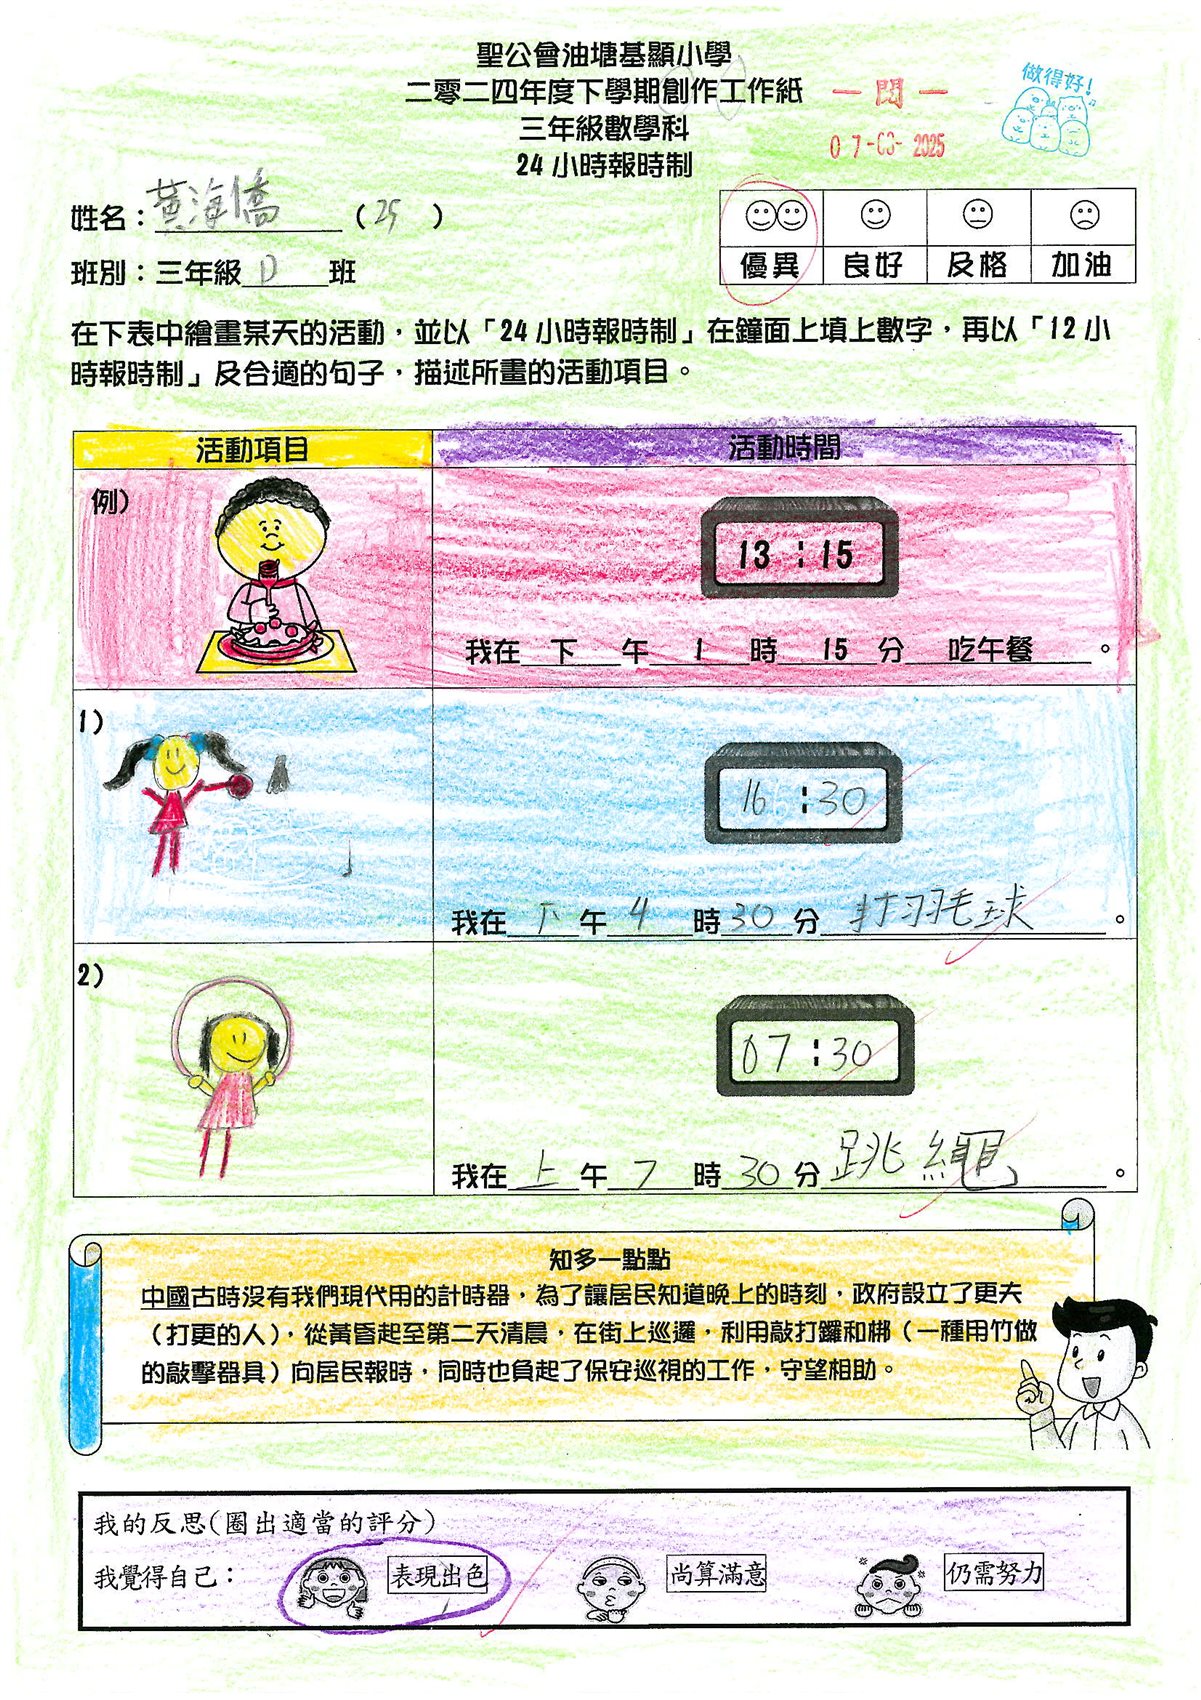 聖公會油塘基顯小學
二零二四年度下學期創作工作紙
三年級數學科
24 小時報時制
一 閱 一
07 -03- 2025
做得好!
姓名：黃海僑 （25）
班別：三年級 D 班
優異 良好 及格 加油
在下表中繪畫某天的活動，並以「24 小時報時制」在鐘面上填上數字，再以「12 小
時報時制」及合適的句子，描述所畫的活動項目。
活動項目 活動時間
例)
13 : 15
我在 下 午 1 時 15 分 吃午餐 。
1)
16 : 30
我在 下 午 4 時 30 分 打羽毛球 。
2)
07 : 30
我在 上 午 7 時 30 分 跳繩 。
知多一點點
中國古時沒有我們現代用的計時器，為了讓居民知道晚上的時刻，政府設立了更夫
（打更的人），從黃昏起至第二天清晨，在街上巡邏，利用敲打鑼和梆（一種用竹做
的敲擊器具）向居民報時，同時也負起了保安巡視的工作，守望相助。
我的反思(圈出適當的評分)
我覺得自己： 表現出色 尚算滿意 仍需努力